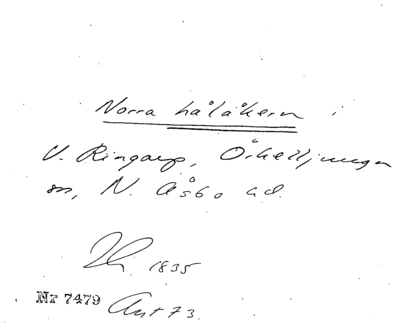 Norra hålåkern i
V. Ringarp, Örkelljunga
sn, N. Åsbo hd.
1835
Nr 7479 Ant 73.